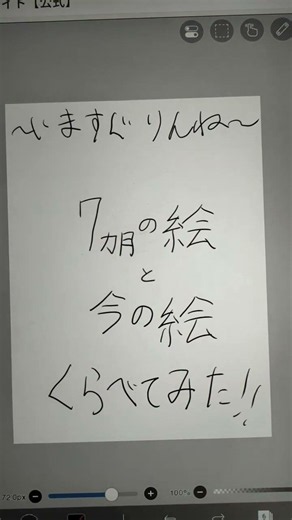 イト【公式】
〜いますぐりんね〜
7ヵ月の絵
と
今の絵
くらべてみた!!
72.0px
100%